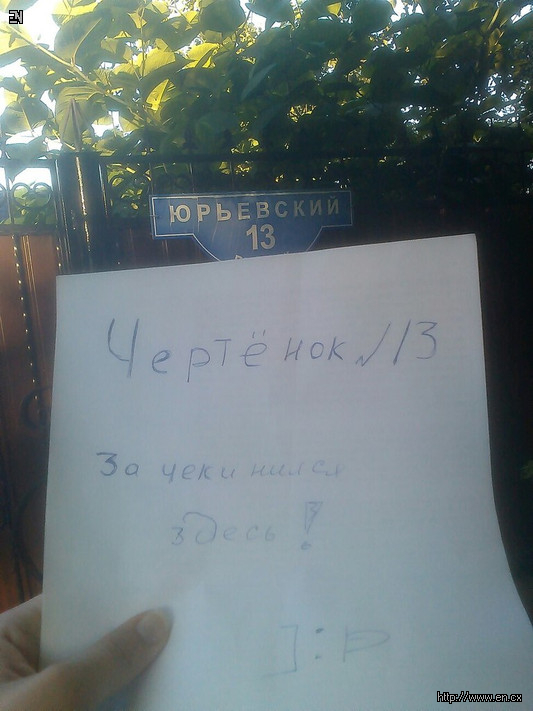 EN
ЮРЬЕВСКИЙ
13
Чертёнок №13
Зачекинился
здесь!
]:P
http://www.en.cx